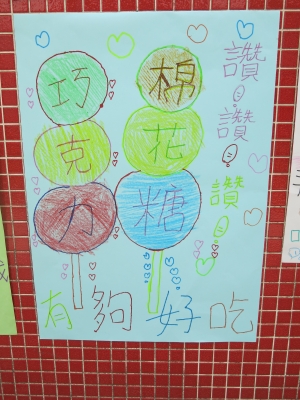 巧克力
棉花糖
讚!
讚!
讚!
有夠好吃